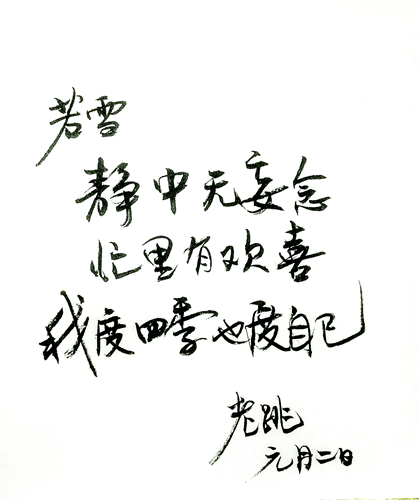 若雪
静中无妄念
忙里有欢喜
我度四季也度自己
老跳
元月二日